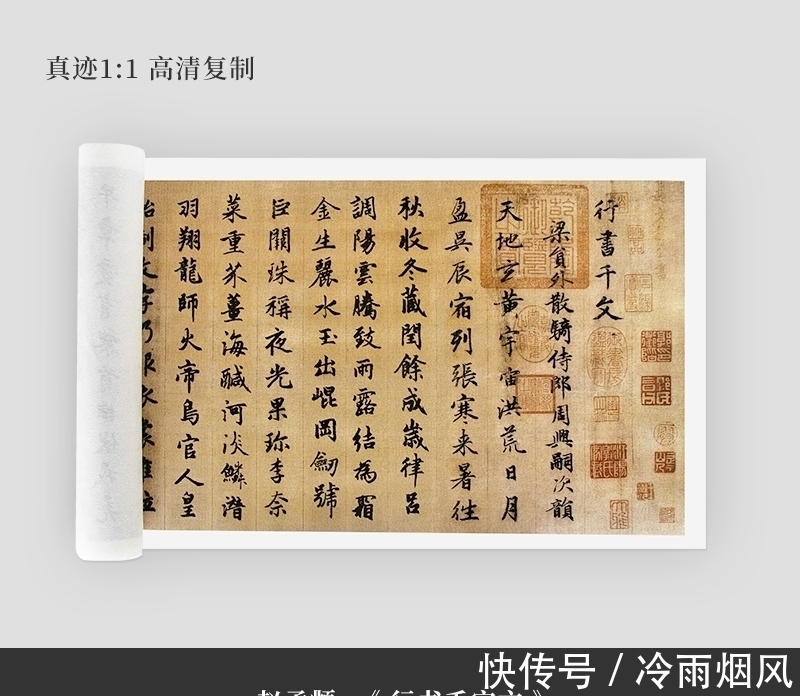 真迹1:1 高清复制
行書千文
梁負外散騎侍郎周興嗣次韻
天地玄黃宇宙洪荒日月
盈昃辰宿列張寒来暑往
秋收冬藏閏餘成歲律呂
調陽雲騰致雨露結為霜
金生麗水玉出崐岡劒號
巨闕珠稱夜光果珎李柰
菜重芥薑海鹹河淡鱗潛
羽翔龍師火帝鳥官人皇
始制文字乃服衣裳推位
快传号 / 冷雨烟风
赵孟頫 《行书千字文》